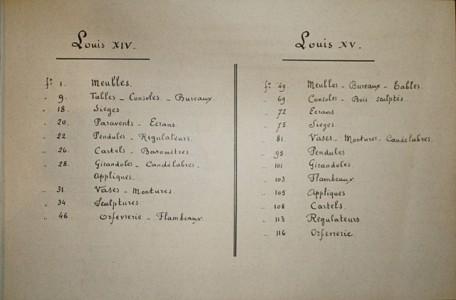 Louis XIV.
fº 1. Meubles.
" 9. Tables - Consoles - Bureaux.
" 18. Sièges
" 20. Paravents - Ecrans.
" 22. Pendules - Régulateurs.
" 26. Cartels - Baromètres
" 28. Girandoles - Candélabres.
Appliques.
" 31. Vases - Montures.
" 34 Sculptures
" 46 Orfèvrerie - Flambeaux.
Louis XV.
fº 49. Meubles - Bureaux - Tables.
" 69 Consoles - Bois sculptés.
" 72 Ecrans
" 75 Sièges
" 81. Vases, Montures, Candélabres.
" 98 Pendules
" 101 Girandoles
" 103 Flambeaux
" 105 Appliques
" 108 Cartels.
" 113 Régulateurs
" 116 Orfèvrerie